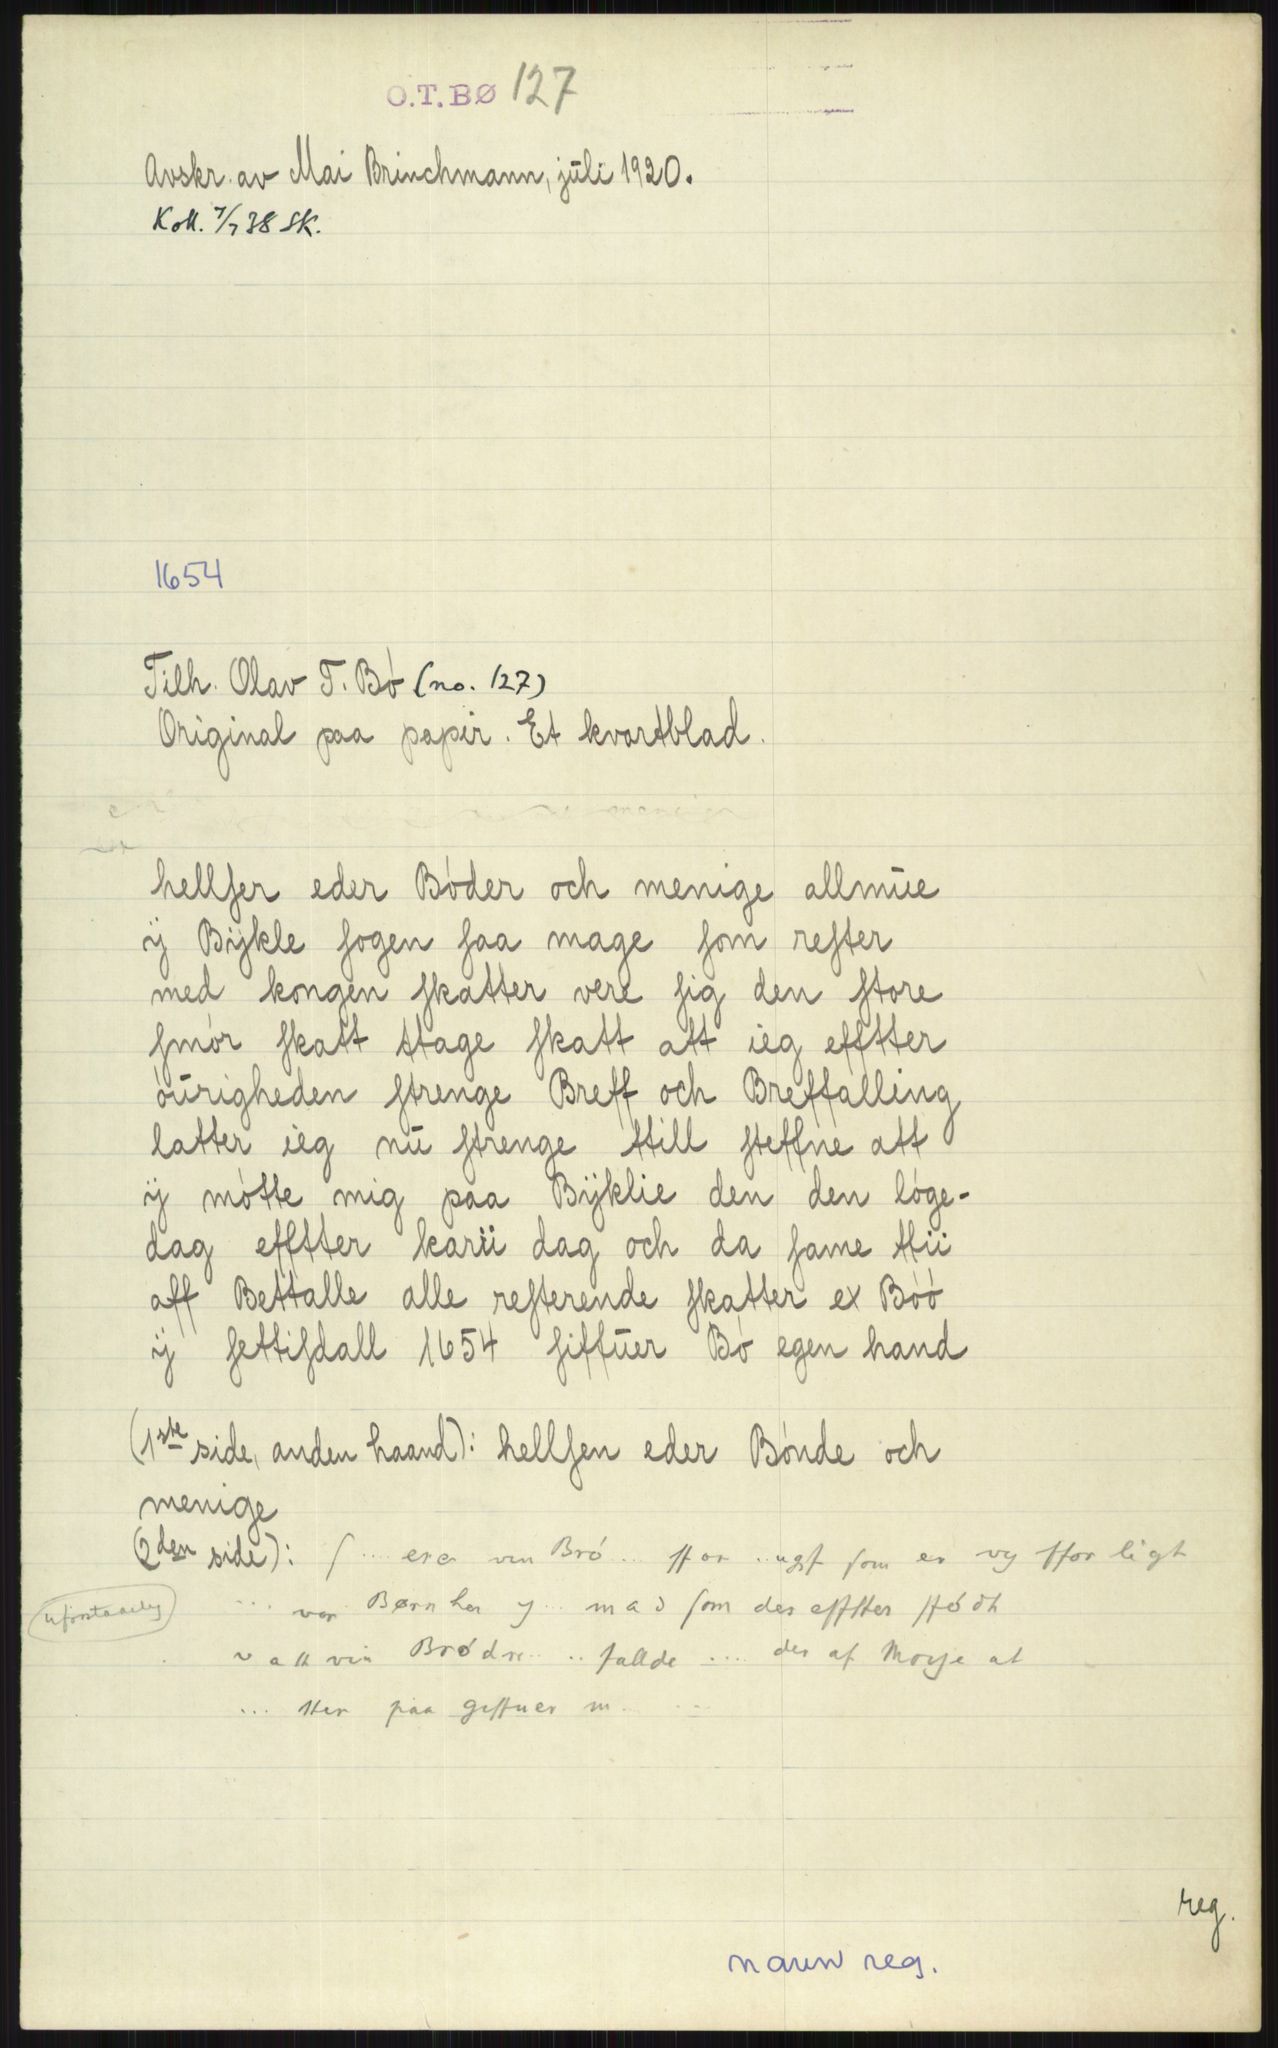 O.T.BØ 127
Avskr. av Mai Brinchmann, juli 1920.
Koll. 7/7 38 SK.
1654
Tilh. Olav T. Bó (no. 127)
Original paa papir. Et kvartblad.
hellſer eder Bóder och menige allmūe
ÿ Bÿkle ſogen ſaa mage ſom reſter
med kongen ſkatter vere ſig den ſtore
ſmór ſkatt ttage ſkatt att ieg efftter
óūrigheden ſtrenge Breff och Breffalling
latter ieg nū ſtrenge ttill ſteffne att
ÿ mótte mig paa Bÿklie den den lóge-
dag efftter karii dag och da ſame ttii
aff Bettalle alle reſterende ſkatter ex Bóó
ÿ ſettiſdall 1654 ſiffūer Bó egen hand
(1ste side, anden haand): hellſen eder Bónde och
menige
(2den side): ſ... era ven Bró... ffor ..ugſ ſom er vy ffor ligt
uforstaaelig
... vor Børn her y... mad ſom der efftter ffódt
vall vin Brødre.. .. fallde .... der af Morſe at
... tter paa geffuer m.
reg.
navn reg.